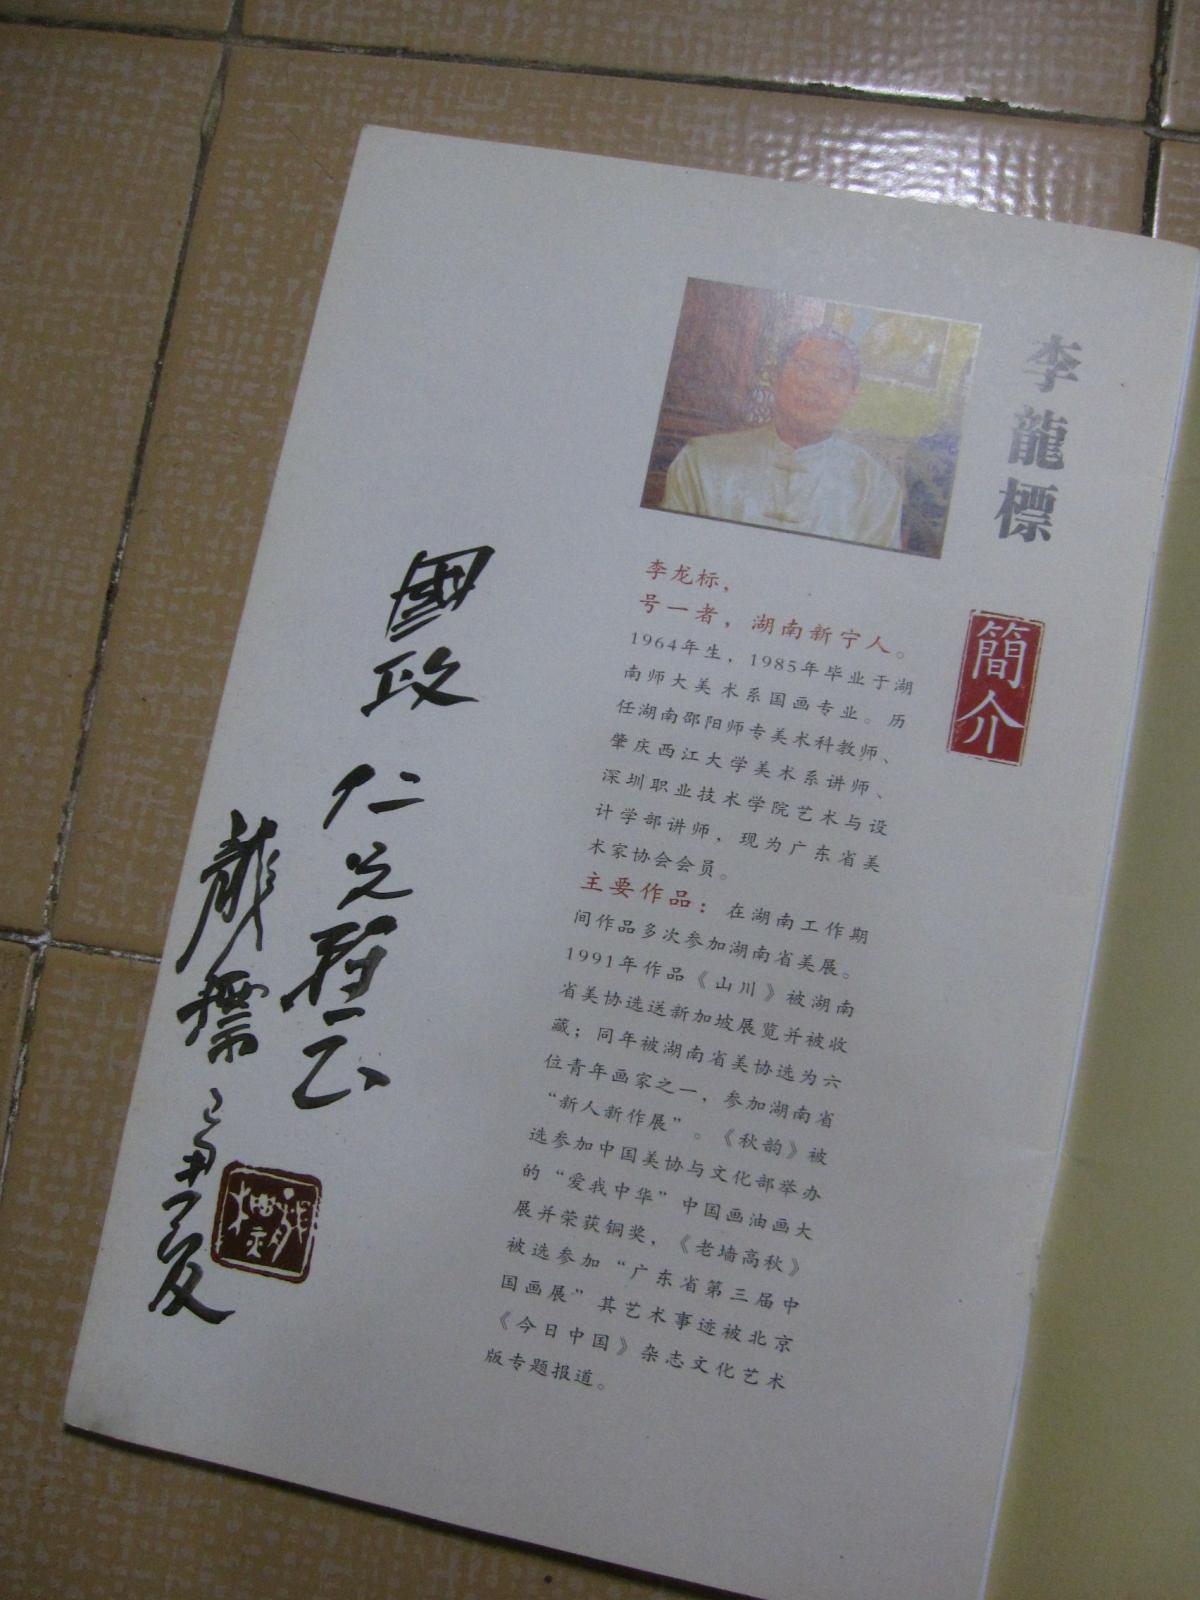 李龍標
簡介
李龙标，
号一者，湖南新宁人。
1964年生，1985年毕业于湖
南师大美术系国画专业。历
任湖南邵阳师专美术科教师、
肇庆西江大学美术系讲师、
深圳职业技术学院艺术与设
计学部讲师，现为广东省美
术家协会会员。
主要作品：在湖南工作期
间作品多次参加湖南省美展。
1991年作品《山川》被湖南
省美协选送新加坡展览并被收
藏；同年被湖南省美协选为六
位青年画家之一，参加湖南省
“新人新作展”。《秋韵》被
选参加中国美协与文化部举办
的“爱我中华”中国画油画大
展并荣获铜奖，《老墙高秋》
被选参加“广东省第三届中
国画展”其艺术事迹被北京
《今日中国》杂志文化艺术
版专题报道。
國政
仁兄雅正
龍標